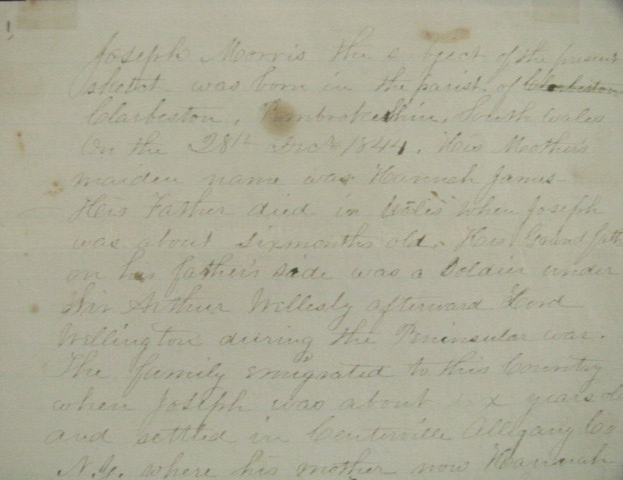 Joseph Morris the subject of the present
sketch was born in the parish of Clarbeston
Clarbeston, Pembrokeshire, South Wales
On the 28th Dec 1844. His Mothers
maiden name was Hannah James
His Father died in Wales when Joseph
was about six months old. His Grand fath
on his father's side was a Soldier under
Sir Arthur Wellesly afterward Lord
Wellington during the Peninsular war.
The family emigrated to this Country
when Joseph was about six years old
and settled in Centerville Allegany Co
N.Y. where his mother now Hannah